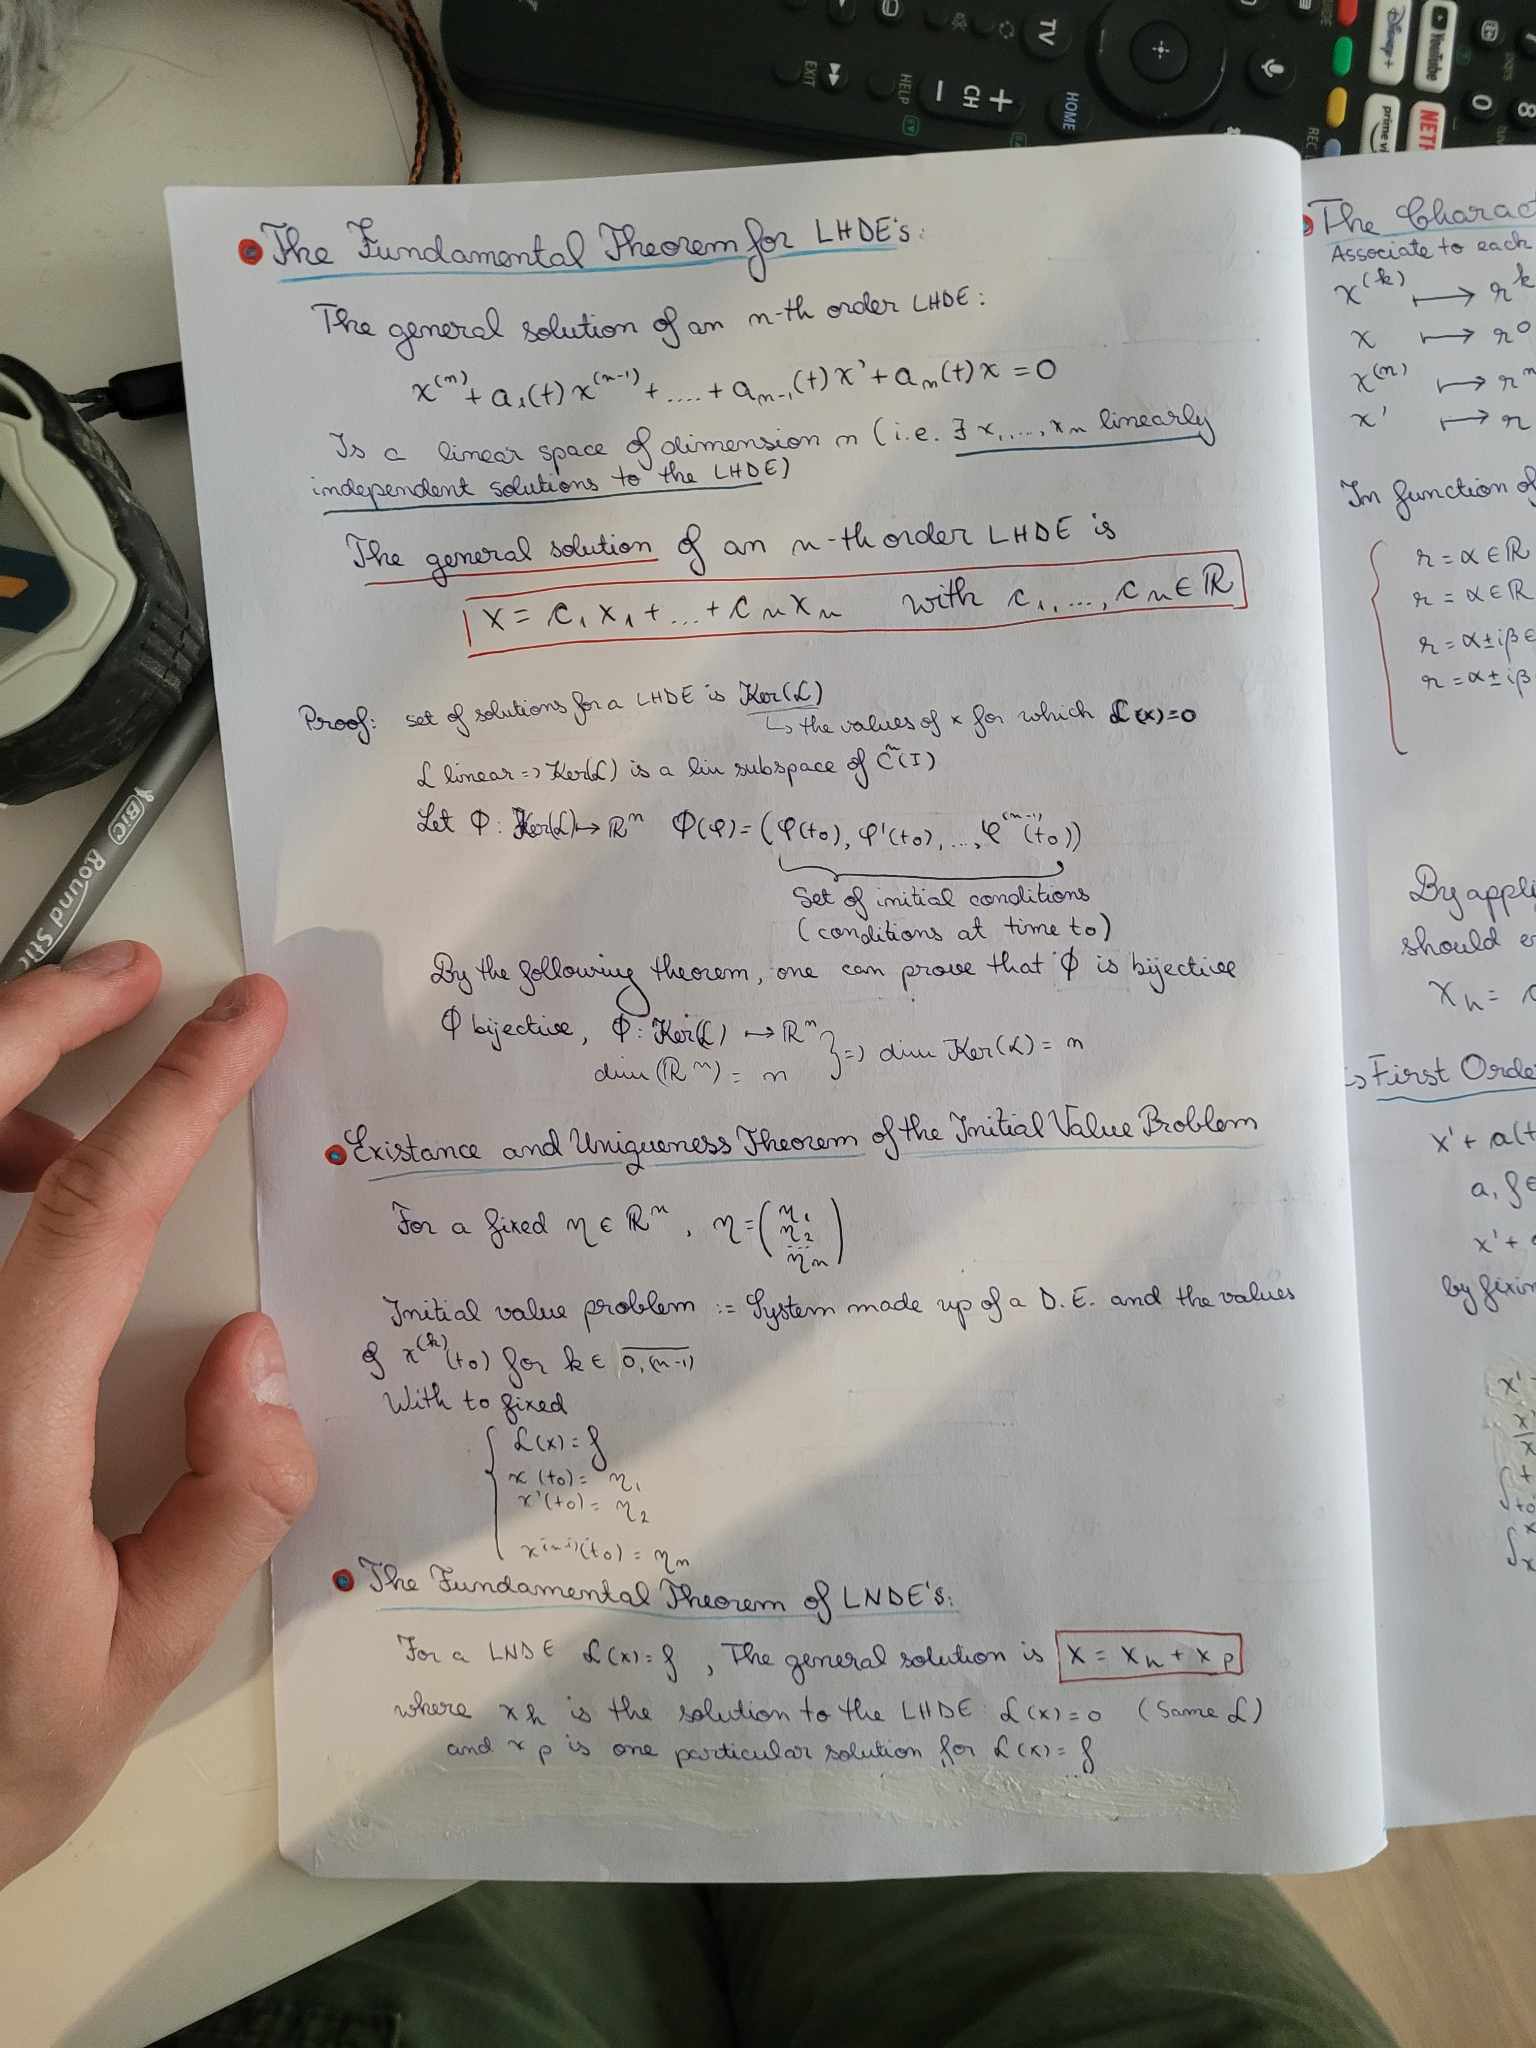 TV
EXIT
HELP
CH
HOME
Disney+
YouTube
prime vi
NETF
REC
0
8
BIC Round Stic
The Fundamental Theorem for LHDE's:
The general solution of an n-th order LHDE:
x^(n) + a₁(t) x^(n-1) + .... + aₙ₋₁(t) x' + aₙ(t) x = 0
Is a linear space of dimension n (i.e. ∃ x₁,...,xₙ linearly
independent solutions to the LHDE)
The general solution of an n-th order LHDE is
x = c₁x₁ + ... + cₙxₙ with c₁,..., cₙ ∈ ℝ
Proof: set of solutions for a LHDE is Ker(ℒ)
↳ the values of x for which ℒ(x)=0
ℒ linear => Ker(ℒ) is a lin subspace of Cⁿ(I)
Let Φ: Ker(ℒ) ↦ ℝⁿ Φ(φ) = (φ(t₀), φ'(t₀), ..., φ^(n-1)(t₀))
Set of initial conditions
(conditions at time t₀)
By the following theorem, one can prove that Φ is bijective
Φ bijective, Φ: Ker(ℒ) ↦ ℝⁿ
dim(ℝⁿ) = n } => dim Ker(ℒ) = n
Existance and Uniqueness Theorem of the Initial Value Problem
For a fixed η ∈ ℝⁿ, η = (η₁ η₂ ... ηₙ)
Initial value problem := System made up of a D.E. and the values
of x^(k)(t₀) for k ∈ 0,(n-1)
With t₀ fixed
ℒ(x) = f
x(t₀) = η₁
x'(t₀) = η₂
x^(n-1)(t₀) = ηₙ
The Fundamental Theorem of LNDE's:
For a LNDE ℒ(x) = f, The general solution is x = x_h + x_p
where x_h is the solution to the LHDE ℒ(x) = 0 (Same ℒ)
and x_p is one particular solution for ℒ(x) = f
The Charact
Associate to each
x^(k) ↦ r^k
x ↦ r⁰
x^(n) ↦ rⁿ
x' ↦ r
In function of
r = α ∈ ℝ
r = α ∈ ℝ
r = α ± iβ ∈
r = α ± iβ
By appli
should e
x_h =
↳ First Orde
x' + a(t
a, f ∈
x' +
by fixin